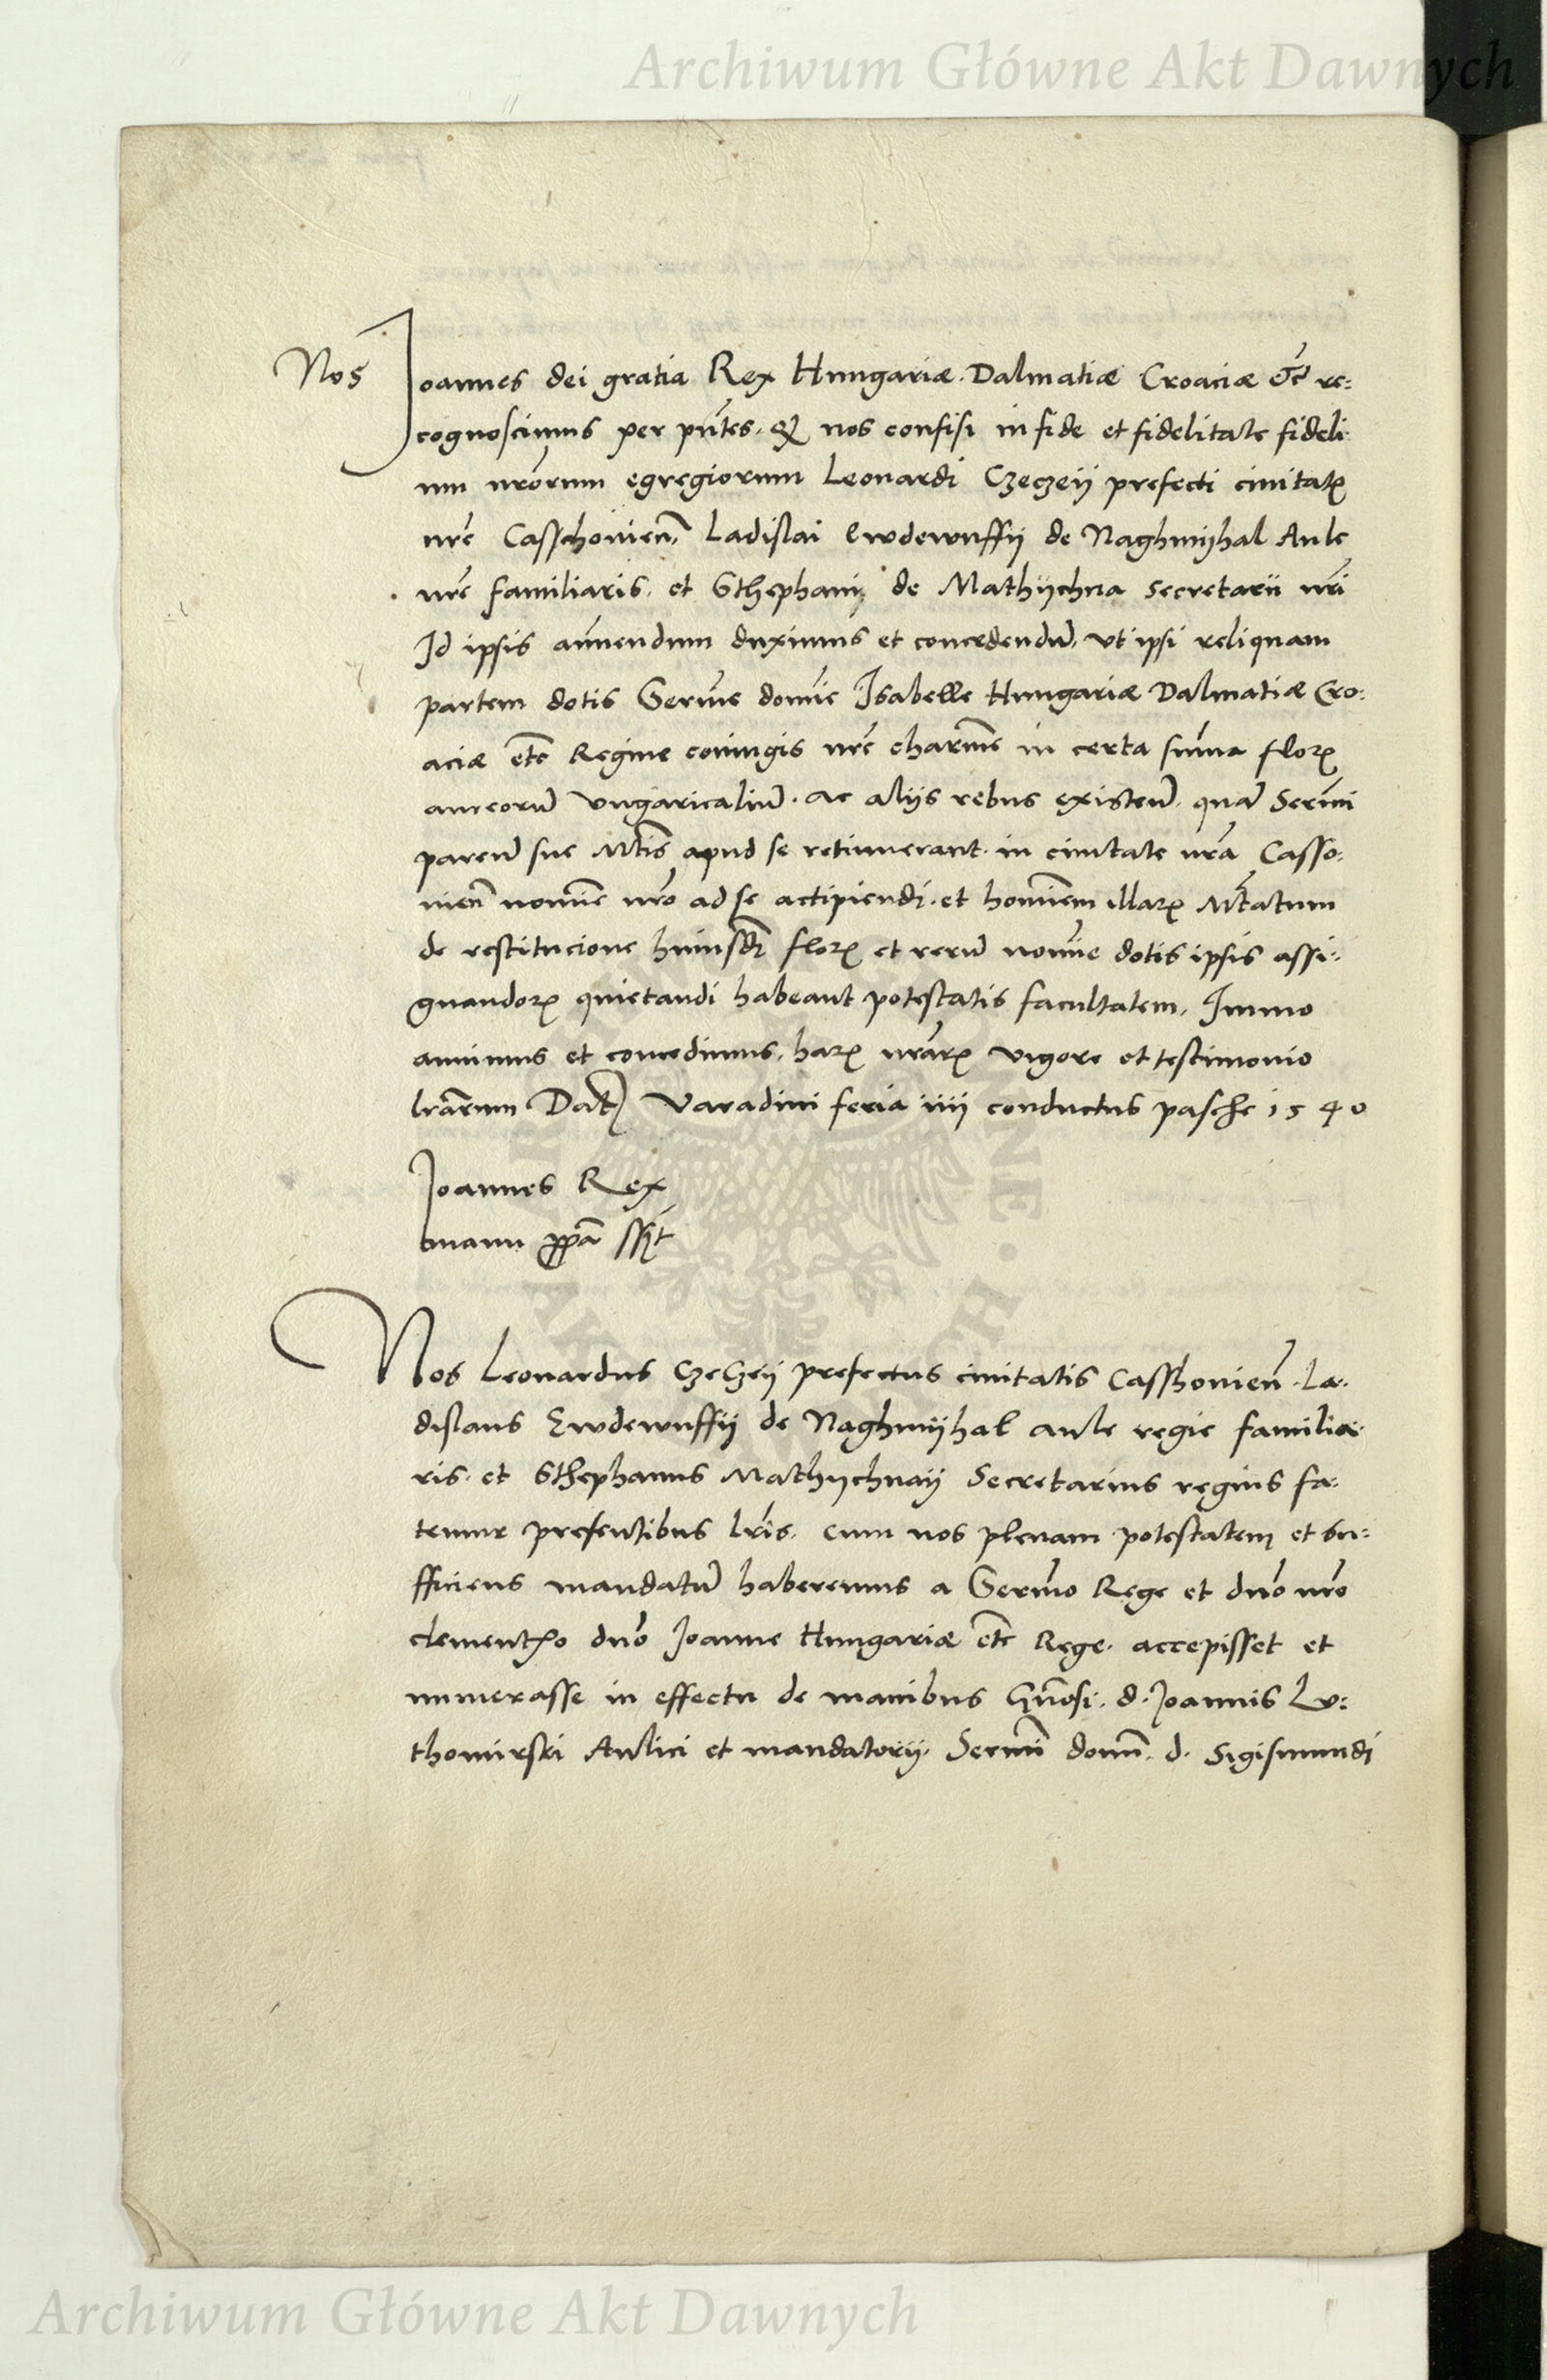 Archiwum Główne Akt Dawnych
Nos Joannes dei gratia Rex Hungariæ. Dalmatiæ Croaciæ etc̃ re:
cognoscimus per pñtes. qđ nos confisi in fide et fidelitate fideli
um nr̃orum egregiorum Leonardi Czeczeij prefecti ciuitatꝭ
nr̃e Casschouieñ, Ladislai Ewdewnffij de Naghmijhal Aule
nr̃e familiaris. et Sthephani de Mathijchna secretarii nr̃i
Id ipsis añuendum duximus et concedendũ, vt ipsi reliquam
partem dotis Serm̃e domĩe Isabelle Hungariæ Dalmatiæ Cro:
aciæ etc̃ Regine coniugis nr̃e charm̃e in certa sum̃a floꝝ
aureorũ vngaricaliũ. ac alijs rebus existeñ. quã Serm̃i
pareñ sue Mt̃is apud se retinuerant. in ciuitate nr̃a Casso:
uieñ nomĩe nr̃o ad se accipiendi. et homĩem illaꝝ Mt̃atum
de restitucione huiusm̃õi floꝝ et rerũ nomĩe dotis ipsis assi:
gnandoꝝ quietandi habeant potestatis facultatem, Immo
annimus et concedimus, haꝝ nr̃aꝝ vigore et testimonio
lr̃arum Datꝭ Varadini feria iiij conductus pasche 1540
Joannes Rex
manu ꝓp̃a sspt̃
Nos Leonardus Czeczeij prefectus ciuitatis Casshouieñ. La.
dislaus Ewdewnffij de Naghmijhal aule regie familia.
ris. et Sthephanus Mathijchnaij Secretarius regius fa.
temur presentibus lr̃is. cum nos plenam potestatem et su:
fficiens mandatũ haberemus a Serm̃o Rege et dño nr̃o
clementꝭo dño Joanne Hungariæ etc̃ Rege. accepisset et
numerasse in effectu de manibus Gñosi. d. Joannis Lu:
thomirski Aulici et mandatorij. Serm̃i domĩ. d. Sigismundi
Archiwum Główne Akt Dawnych